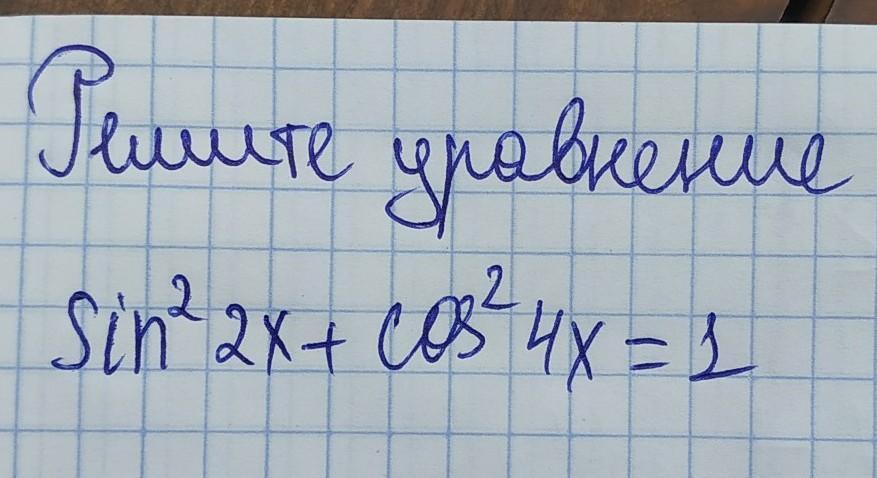 Решите уравнение
sin² 2x + cos² 4x = 1